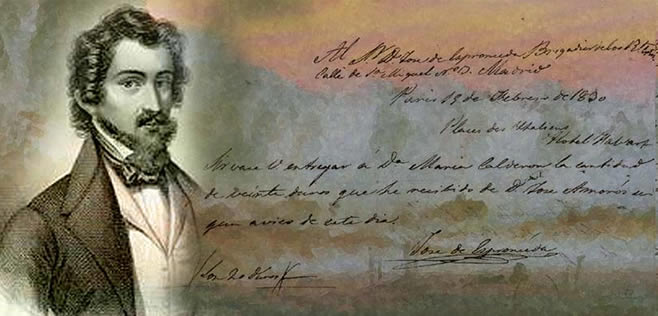 Al Sr. Dn. Jose de Espronceda Brigadier de los
Calle de Sn. Miguel No. Madrid
Paris 15 de Febrero de 1830
Place des Italiens
Hotel
Sirvase V entregar á Da. Maria Calderon la cantidad
de veinte duros que he recibido de Dn. Jose Amorós se
gun aviso de este dia.
Jose de Espronceda
Son 20 duros